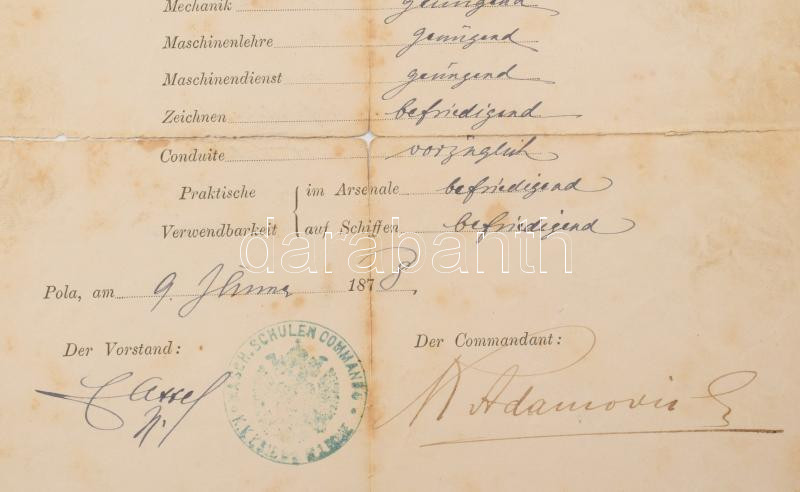 Mechanik genügend
Maschinenlehre genügend
Maschinendienst genügend
Zeichnen befriedigend
Conduite vorzüglich
Praktische im Arsenale befriedigend
Verwendbarkeit auf Schiffen befriedigend
darabanth
Pola, am 9. Jänner 1878.
Der Vorstand:
Der Commandant:
MASCH. SCHULEN COMMANDO
K. K.
Adamovic